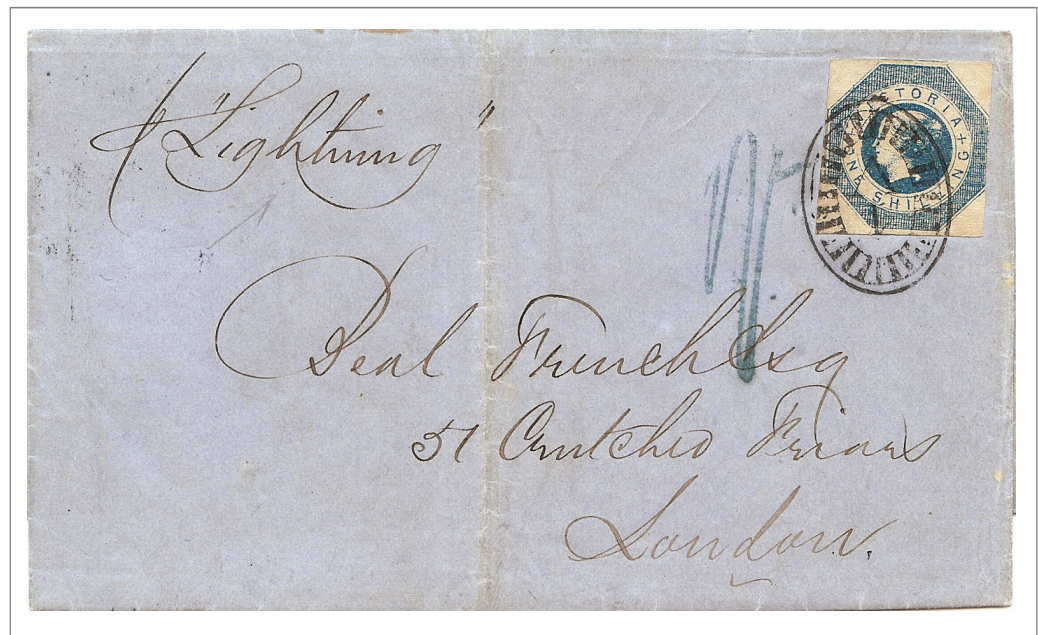 p "Lightning"
VICTORIA + ONE SHILLING +
1/-
Deal French Esq
51 Crutched Friars
London.